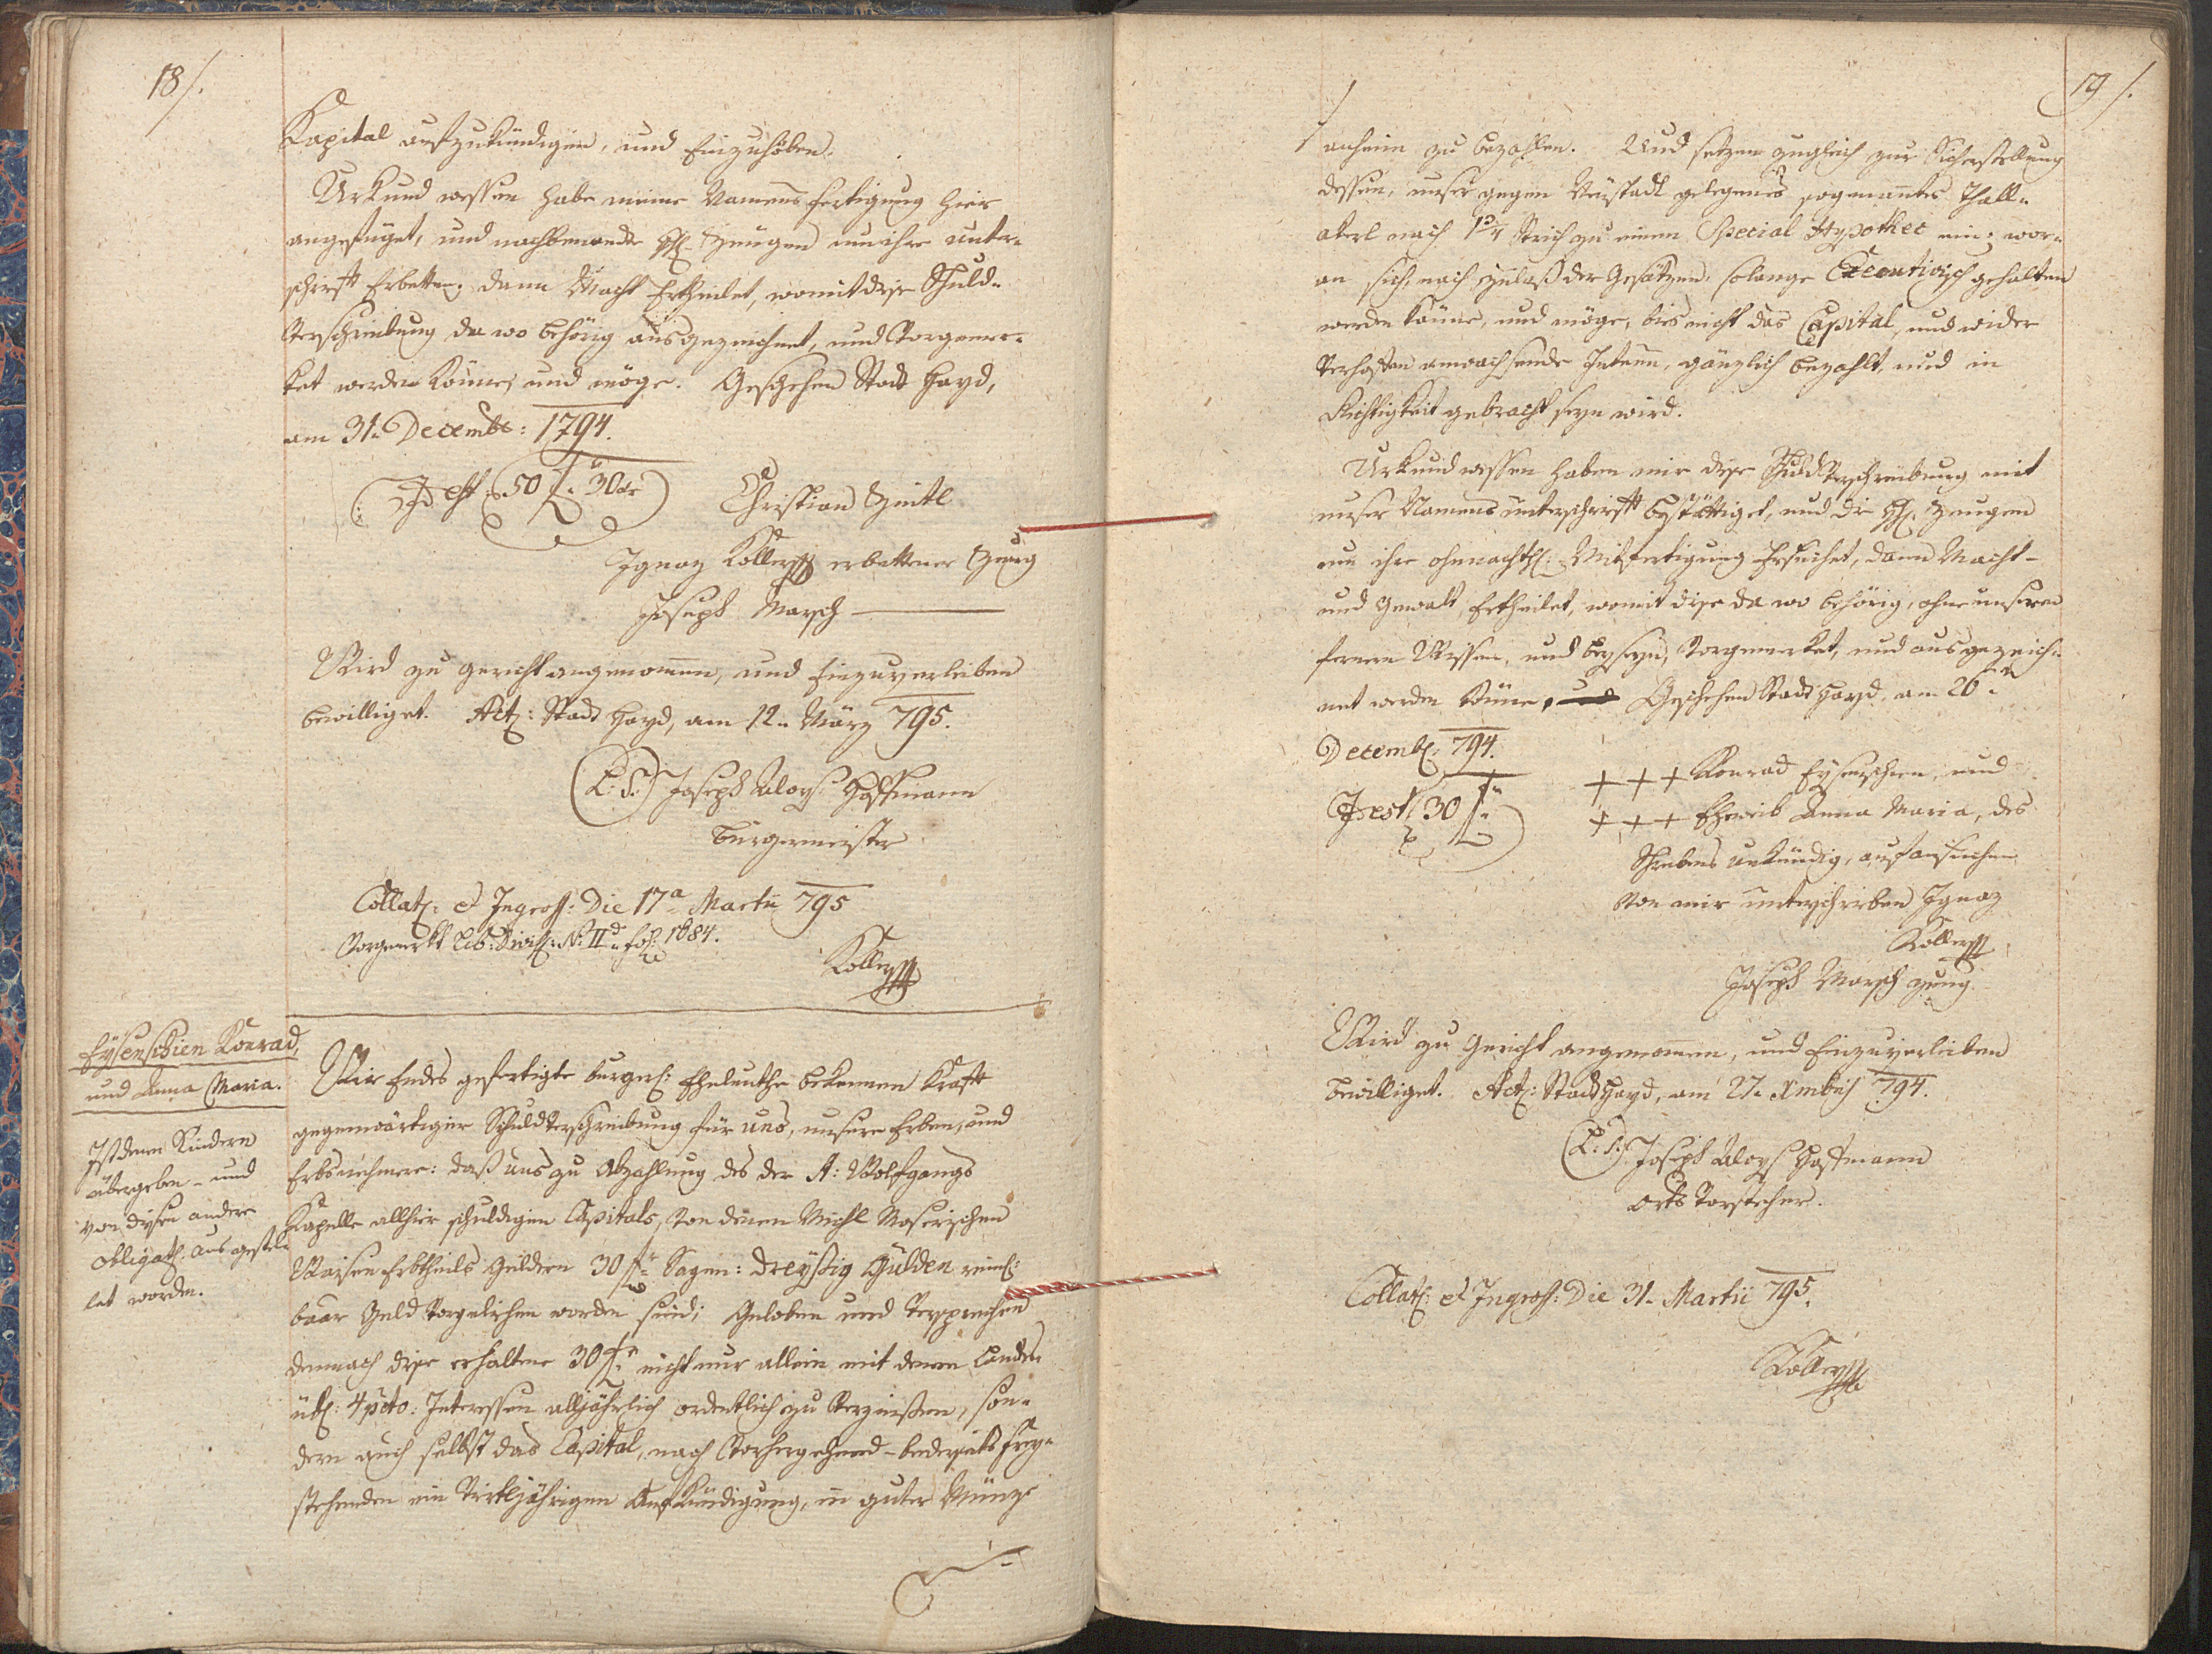 18/.
Kapital aufzukündigen, und Einzuhöben.
Urkund dessen habe meine Namens fertigung hier
angefüget, und nachbenande HH. Zeugen um ihre unter-
schrift Erbetten, dann Macht Ertheilet, womit diese Schuld-
Verschreibung da wo behörig ausgezeichnet, und Vorgemer-
ket werden könne, und möge. Geschehen Stadt Hayd,
am 31. Decembr: 1794.
Id est 50 f. 30 xr
Christian Zintl
Ignaz Koller erbettener Zeug
Joseph Marsch
Wird zu gericht angenommen, und Einzuverleiben
bewilliget. Act: Stadt Hayd, am 12. März 795.
(L: S:) Joseph Aloys Hoffmann
Bürgermeister
Collat: et Ingross: Die 17a Martii 795
Vorgemerkt Lib: N: II fol: 1684.
Koller
Eysenschien Konrad,
und Anna Maria.
Ist denen Kindern
übergeben - und
von diesen andere
obligath: ausgestel-
let worden.
Wir Endes gefertigte burgerl: Eheleuthe bekennen Kraft
gegenwärtiger Schuldverschreibung für uns, unsere Erben, und
Erbsnehmere: daß uns zu Abzahlung des der St: Wolfgangs
Kapelle allhier schuldigen Capitals, von denen Michl Moserischen
Waisen Erbtheils Geldern 30 f. Sagen: Dreyßig Gulden reinl:
baar Geld Vorgeliehen worden sind; Geloben und Versprechen
demnach diese erhaltene 30 f. nicht nur allein mit denen Landes-
übl: 4 pcto: Interessen alljährlich ordentlich zu Verzinßen, son-
dern auch selbst das Capital, nach Vorhergehend - bederseits frey-
stehenden ein Virtljährigen Aufkündigung, in guter Münz
19/.
anheim zu bezahlen. Und setzen zugleich zur Sicherstellung
dessen, unser gegen Neustadt gelegenes sogenanntes Thall-
akerl nach Strich zu einem Special Hypothec ein; wor-
an sich, nach Zulaß der Gesätzen, solange Executivisch gehalten
werden könne, und möge, bis nicht das Capital, und wider
Verhoffen anwachsende Interessen, gänzlich bezahlt, und in
Richtigkeit gebracht seyn wird.
Urkund dessen haben wir diese Schuldverschreibung mit
unser Namens unterschrift bestättiget, und die HH. Zeugen
um ihre ohnnachtl: Mitfertigung Ersuchet, dann Macht-
und Gewalt Ertheilet, womit diese da wo behörig, ohne unseren
fernern Wissen, und beyseyn, Vorgemerket, und ausgezeich-
net werden könne, Geschehen Stadt Hayd, am 26.
Decemb: 794.
Id est 30 f.
+ + + Konrad Eysenschien, und
+ + + Eheweib Anna Maria, des
Schreibens unkündig, auf ansuchen
Von mir unterschrieben Ignaz
Koller
Joseph Marsch zeug
Wird zu Gericht angenommen, und Einzuverleiben
bewilliget. Act: Stadt Hayd, am 27. Xmbris 794.
(L: S:) Joseph Aloys Hoffmann
orts Vorsteher.
Collat: et Ingross: Die 31. Martii 795.
Koller